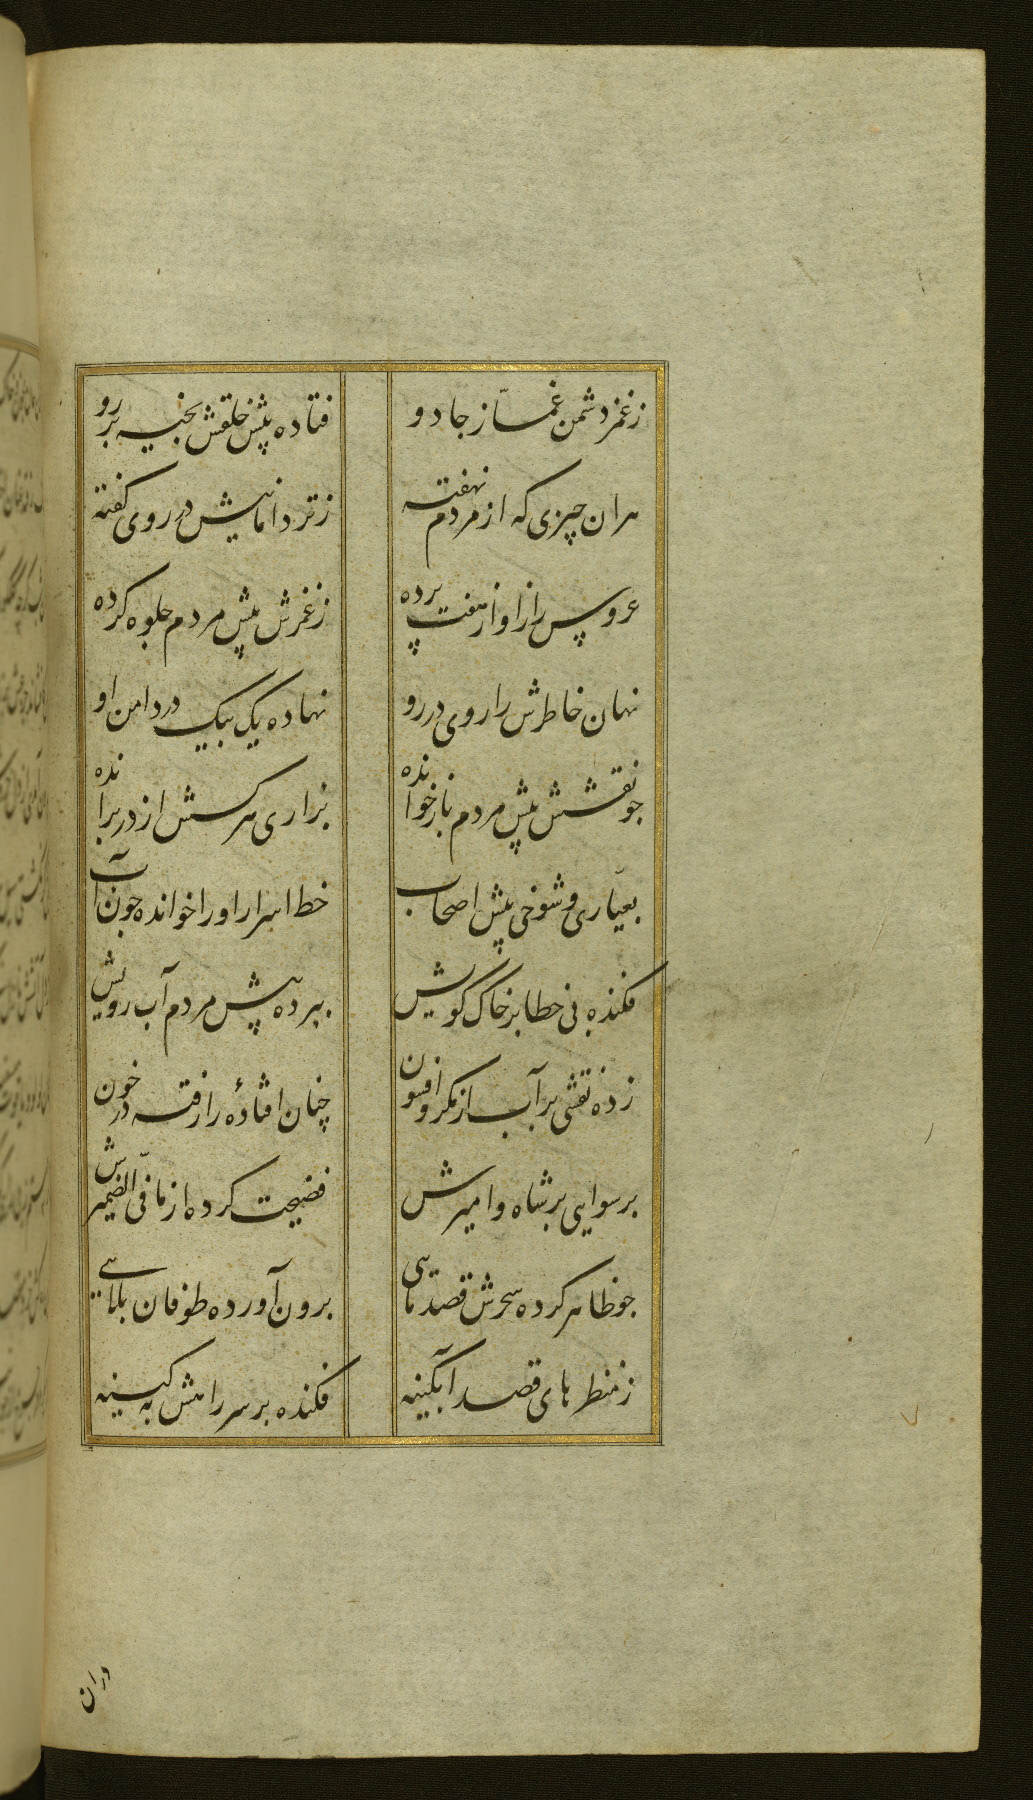 ز غمز دشمن غمّاز جادو فتاده پیش خلقش بخیه بر رو
هران چیزی که از مردم نهفته ز تر دامانیش در روی گفته
عروس راز او از هفت پرده ز غمزش پیش مردم جلوه کرده
نهان خاطرش را روی در رو نهاده یک بیک در دامن او
جو نقشش پیش مردم باز خوانده بزاری هر کسش از در برانده
بعیّاری و شوخی پیش اصحاب خط اسرار او را خوانده جون آب
فکنده نی خطا بر خاک کویش ببرده پیش مردم آب رویش
زده نقشی بر آب از مکر و افسون چنان افتاده را رفته در خون
برسوایی بر شاه و امیرش فضیحت کرده از ما فی الضمیرش
جو ظاهر کرده سحرش قصد برون آورده طوفان بلایی
ز منظرهای قصد آبگینه فکنده بر سر راهش به کینه
دران